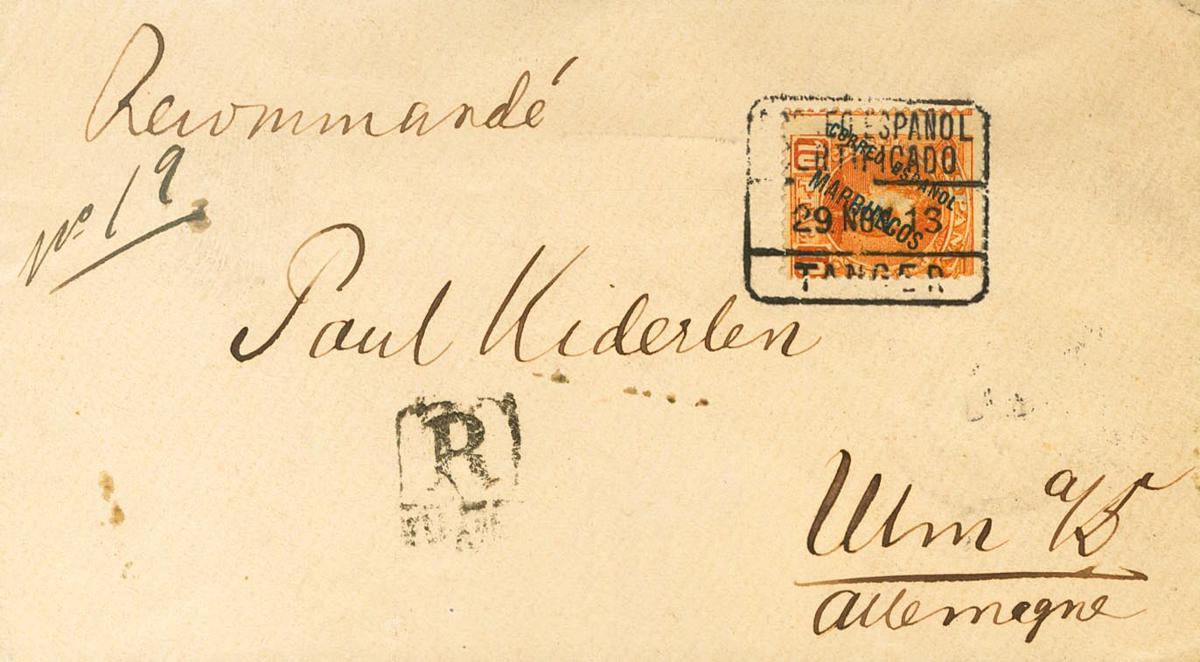 Recommandé
Nº 19
EO ESPAÑOL
RTIFICADO
CORREO ESPAÑOL
MARRUECOS
29 NOV 13
TANGER
Paul Kiderlen
R
Ulm a/D
Allemagne